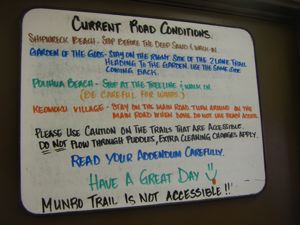 CURRENT ROAD CONDITIONS.
SHIPWRECK BEACH - STOP BEFORE THE DEEP SAND & WALK IN
GARDEN OF THE GODS - STAY ON THE RIGHT SIDE OF THE 2 LANE TRAIL
HEADING TO THE GARDEN. USE THE SAME SIDE
COMING BACK.
POLIHUA BEACH - STOP AT THE TREELINE & WALK IN
(BE CAREFUL FOR WINDS.)
KEOMOKU VILLAGE - STAY ON THE MAIN ROAD TURN AROUND ON THE
MAIN ROAD WHEN DONE. DO NOT USE BEACH ACCESS.
PLEASE USE CAUTION ON THE TRAILS THAT ARE ACCESSIBLE.
DO NOT PLOW THROUGH PUDDLES, EXTRA CLEANING CHARGES APPLY.
READ YOUR ADDENDUM CAREFULLY.
HAVE A GREAT DAY
MUNRO TRAIL IS NOT ACCESSIBLE!!